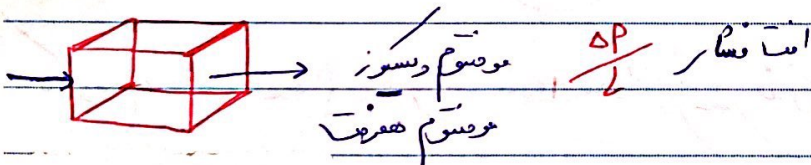 افت فشار ΔP/L مومنتوم ویسکوز
مومنتوم همرفت